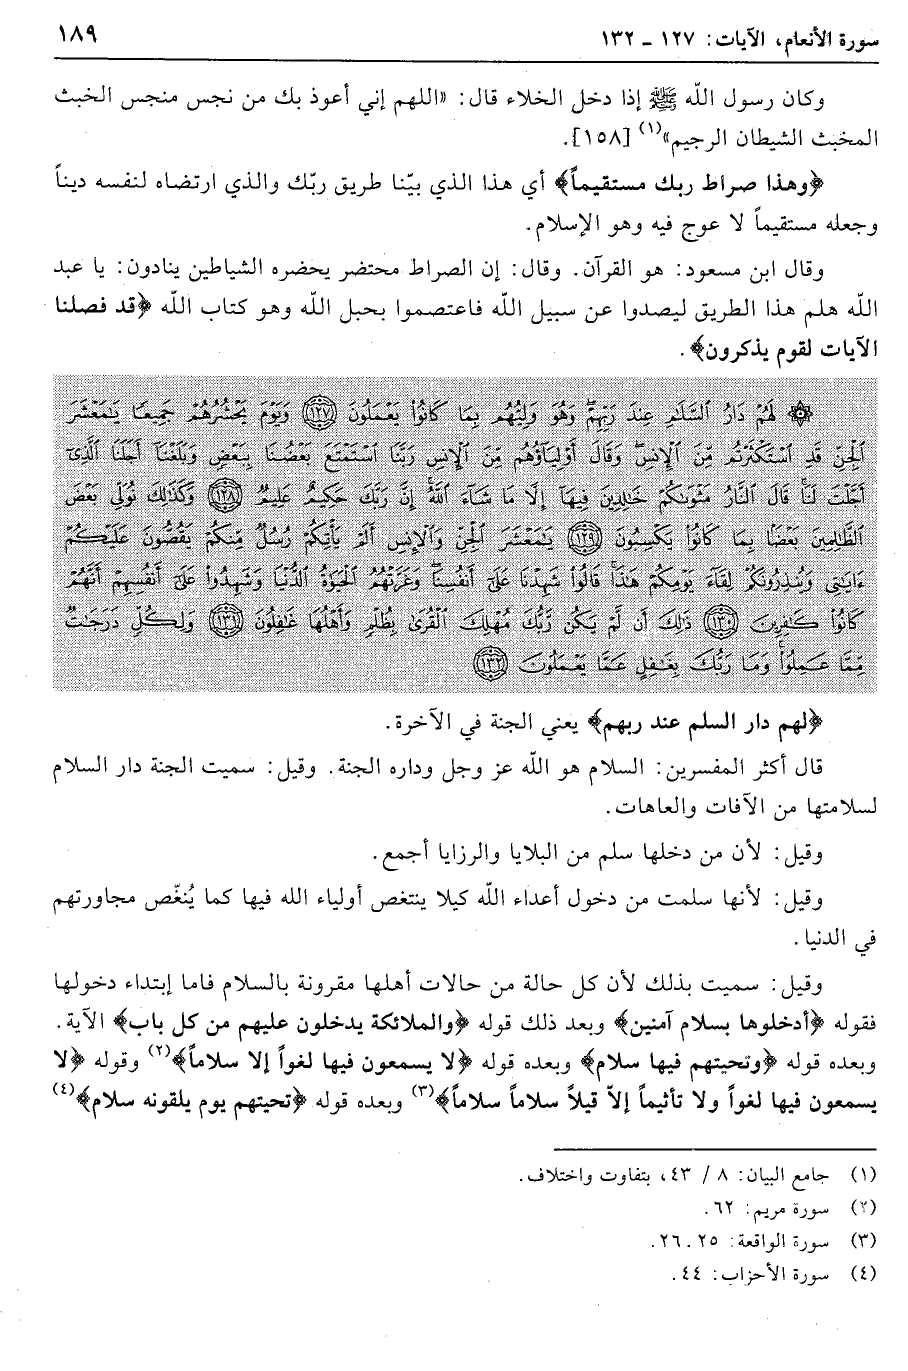 سورة الأنعام، الآيات: ١٢٧ ـ ١٣٢
١٨٩
وكان رسول الله ﷺ إذا دخل الخلاء قال: «اللهم إني أعوذ بك من نجس منجس الخبث
المخبث الشيطان الرجيم»(١) [١٥٨].
﴿وهذا صراط ربك مستقيماً﴾ أي هذا الذي بيّنا طريق ربّك والذي ارتضاه لنفسه ديناً
وجعله مستقيماً لا عوج فيه وهو الإسلام.
وقال ابن مسعود: هو القرآن. وقال: إن الصراط محتضر يحضره الشياطين ينادون: يا عبد
الله هلم هذا الطريق ليصدوا عن سبيل الله فاعتصموا بحبل الله وهو كتاب الله ﴿قد فصلنا
الآيات لقوم يذكرون﴾.
۞ لَهُمْ دَارُ السَّلَامِ عِندَ رَبِّهِمْ وَهُوَ وَلِيُّهُم بِمَا كَانُوا يَعْمَلُونَ (١٢٧) وَيَوْمَ يَحْشُرُهُمْ جَمِيعًا يَٰمَعْشَرَ
الْجِنِّ قَدِ اسْتَكْثَرْتُم مِّنَ الْإِنسِ وَقَالَ أَوْلِيَاؤُهُم مِّنَ الْإِنسِ رَبَّنَا اسْتَمْتَعَ بَعْضُنَا بِبَعْضٍ وَبَلَغْنَا أَجَلَنَا الَّذِي
أَجَّلْتَ لَنَا قَالَ النَّارُ مَثْوَىٰكُمْ خَالِدِينَ فِيهَا إِلَّا مَا شَاءَ اللَّهُ إِنَّ رَبَّكَ حَكِيمٌ عَلِيمٌ (١٢٨) وَكَذَٰلِكَ نُوَلِّي بَعْضَ
الظَّالِمِينَ بَعْضًا بِمَا كَانُوا يَكْسِبُونَ (١٢٩) يَٰمَعْشَرَ الْجِنِّ وَالْإِنسِ أَلَمْ يَأْتِكُمْ رُسُلٌ مِّنكُمْ يَقُصُّونَ عَلَيْكُمْ
ءَايَٰتِي وَيُنذِرُونَكُمْ لِقَاءَ يَوْمِكُمْ هَٰذَا قَالُوا شَهِدْنَا عَلَىٰ أَنفُسِنَا وَغَرَّتْهُمُ الْحَيَوٰةُ الدُّنْيَا وَشَهِدُوا عَلَىٰ أَنفُسِهِمْ أَنَّهُمْ
كَانُوا كَٰفِرِينَ (١٣٠) ذَٰلِكَ أَن لَّمْ يَكُن رَّبُّكَ مُهْلِكَ الْقُرَىٰ بِظُلْمٍ وَأَهْلُهَا غَٰفِلُونَ (١٣١) وَلِكُلٍّ دَرَجَٰتٌ
مِّمَّا عَمِلُوا وَمَا رَبُّكَ بِغَٰفِلٍ عَمَّا يَعْمَلُونَ (١٣٢)
﴿لهم دار السلم عند ربهم﴾ يعني الجنة في الآخرة.
قال أكثر المفسرين: السلام هو الله عز وجل وداره الجنة. وقيل: سميت الجنة دار السلام
لسلامتها من الآفات والعاهات.
وقيل: لأن من دخلها سلم من البلايا والرزايا أجمع.
وقيل: لأنها سلمت من دخول أعداء الله كيلا ينتغص أولياء الله فيها كما يُنغّص مجاورتهم
في الدنيا.
وقيل: سميت بذلك لأن كل حالة من حالات أهلها مقرونة بالسلام فاما إبتداء دخولها
فقوله ﴿أدخلوها بسلام آمنين﴾ وبعد ذلك قوله ﴿والملائكة يدخلون عليهم من كل باب﴾ الآية.
وبعده قوله ﴿وتحيتهم فيها سلام﴾ وبعده قوله ﴿لا يسمعون فيها لغواً إلا سلاماً﴾(٢) وقوله ﴿لا
يسمعون فيها لغواً ولا تأثيماً إلاّ قيلاً سلاماً سلاماً﴾(٣) وبعده قوله ﴿تحيتهم يوم يلقونه سلام﴾(٤)
(١) جامع البيان: ٨ / ٤٣، بتفاوت واختلاف.
(٢) سورة مريم: ٦٢.
(٣) سورة الواقعة: ٢٥ـ٢٦.
(٤) سورة الأحزاب: ٤٤.